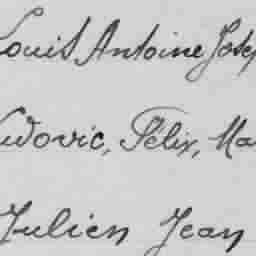 Louis Antoine Josep
Ludovic, Félix, Ma
Julien Jean